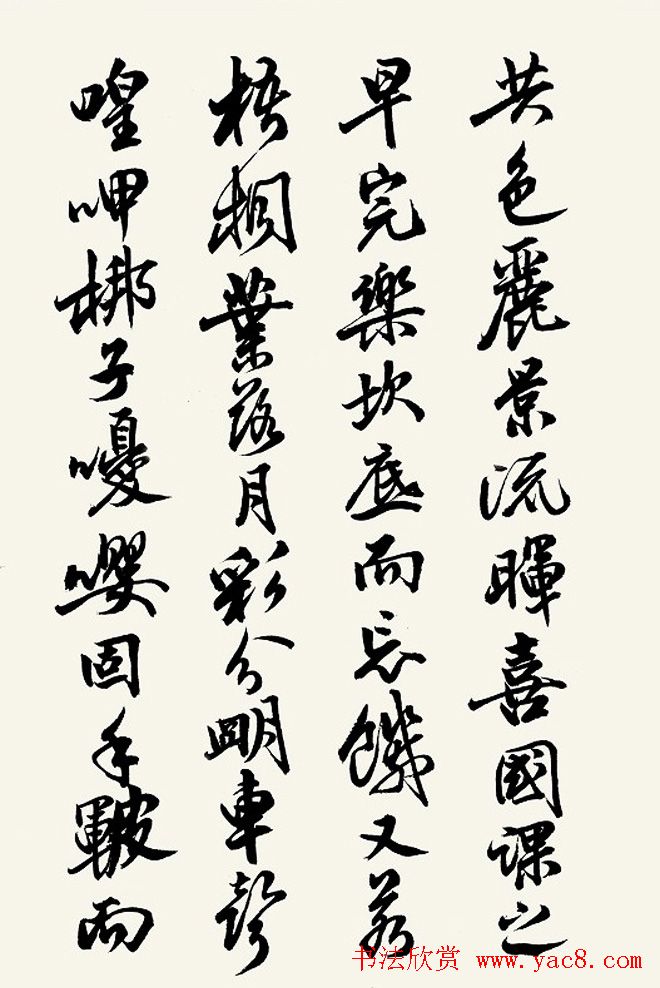 共色麗景流暉喜國課之
早完樂坎底而忘饑又若
梧桐業落月彩分明車聲
喤呷梆子嗄嚶固手皸而
书法欣赏 www.yac8.com